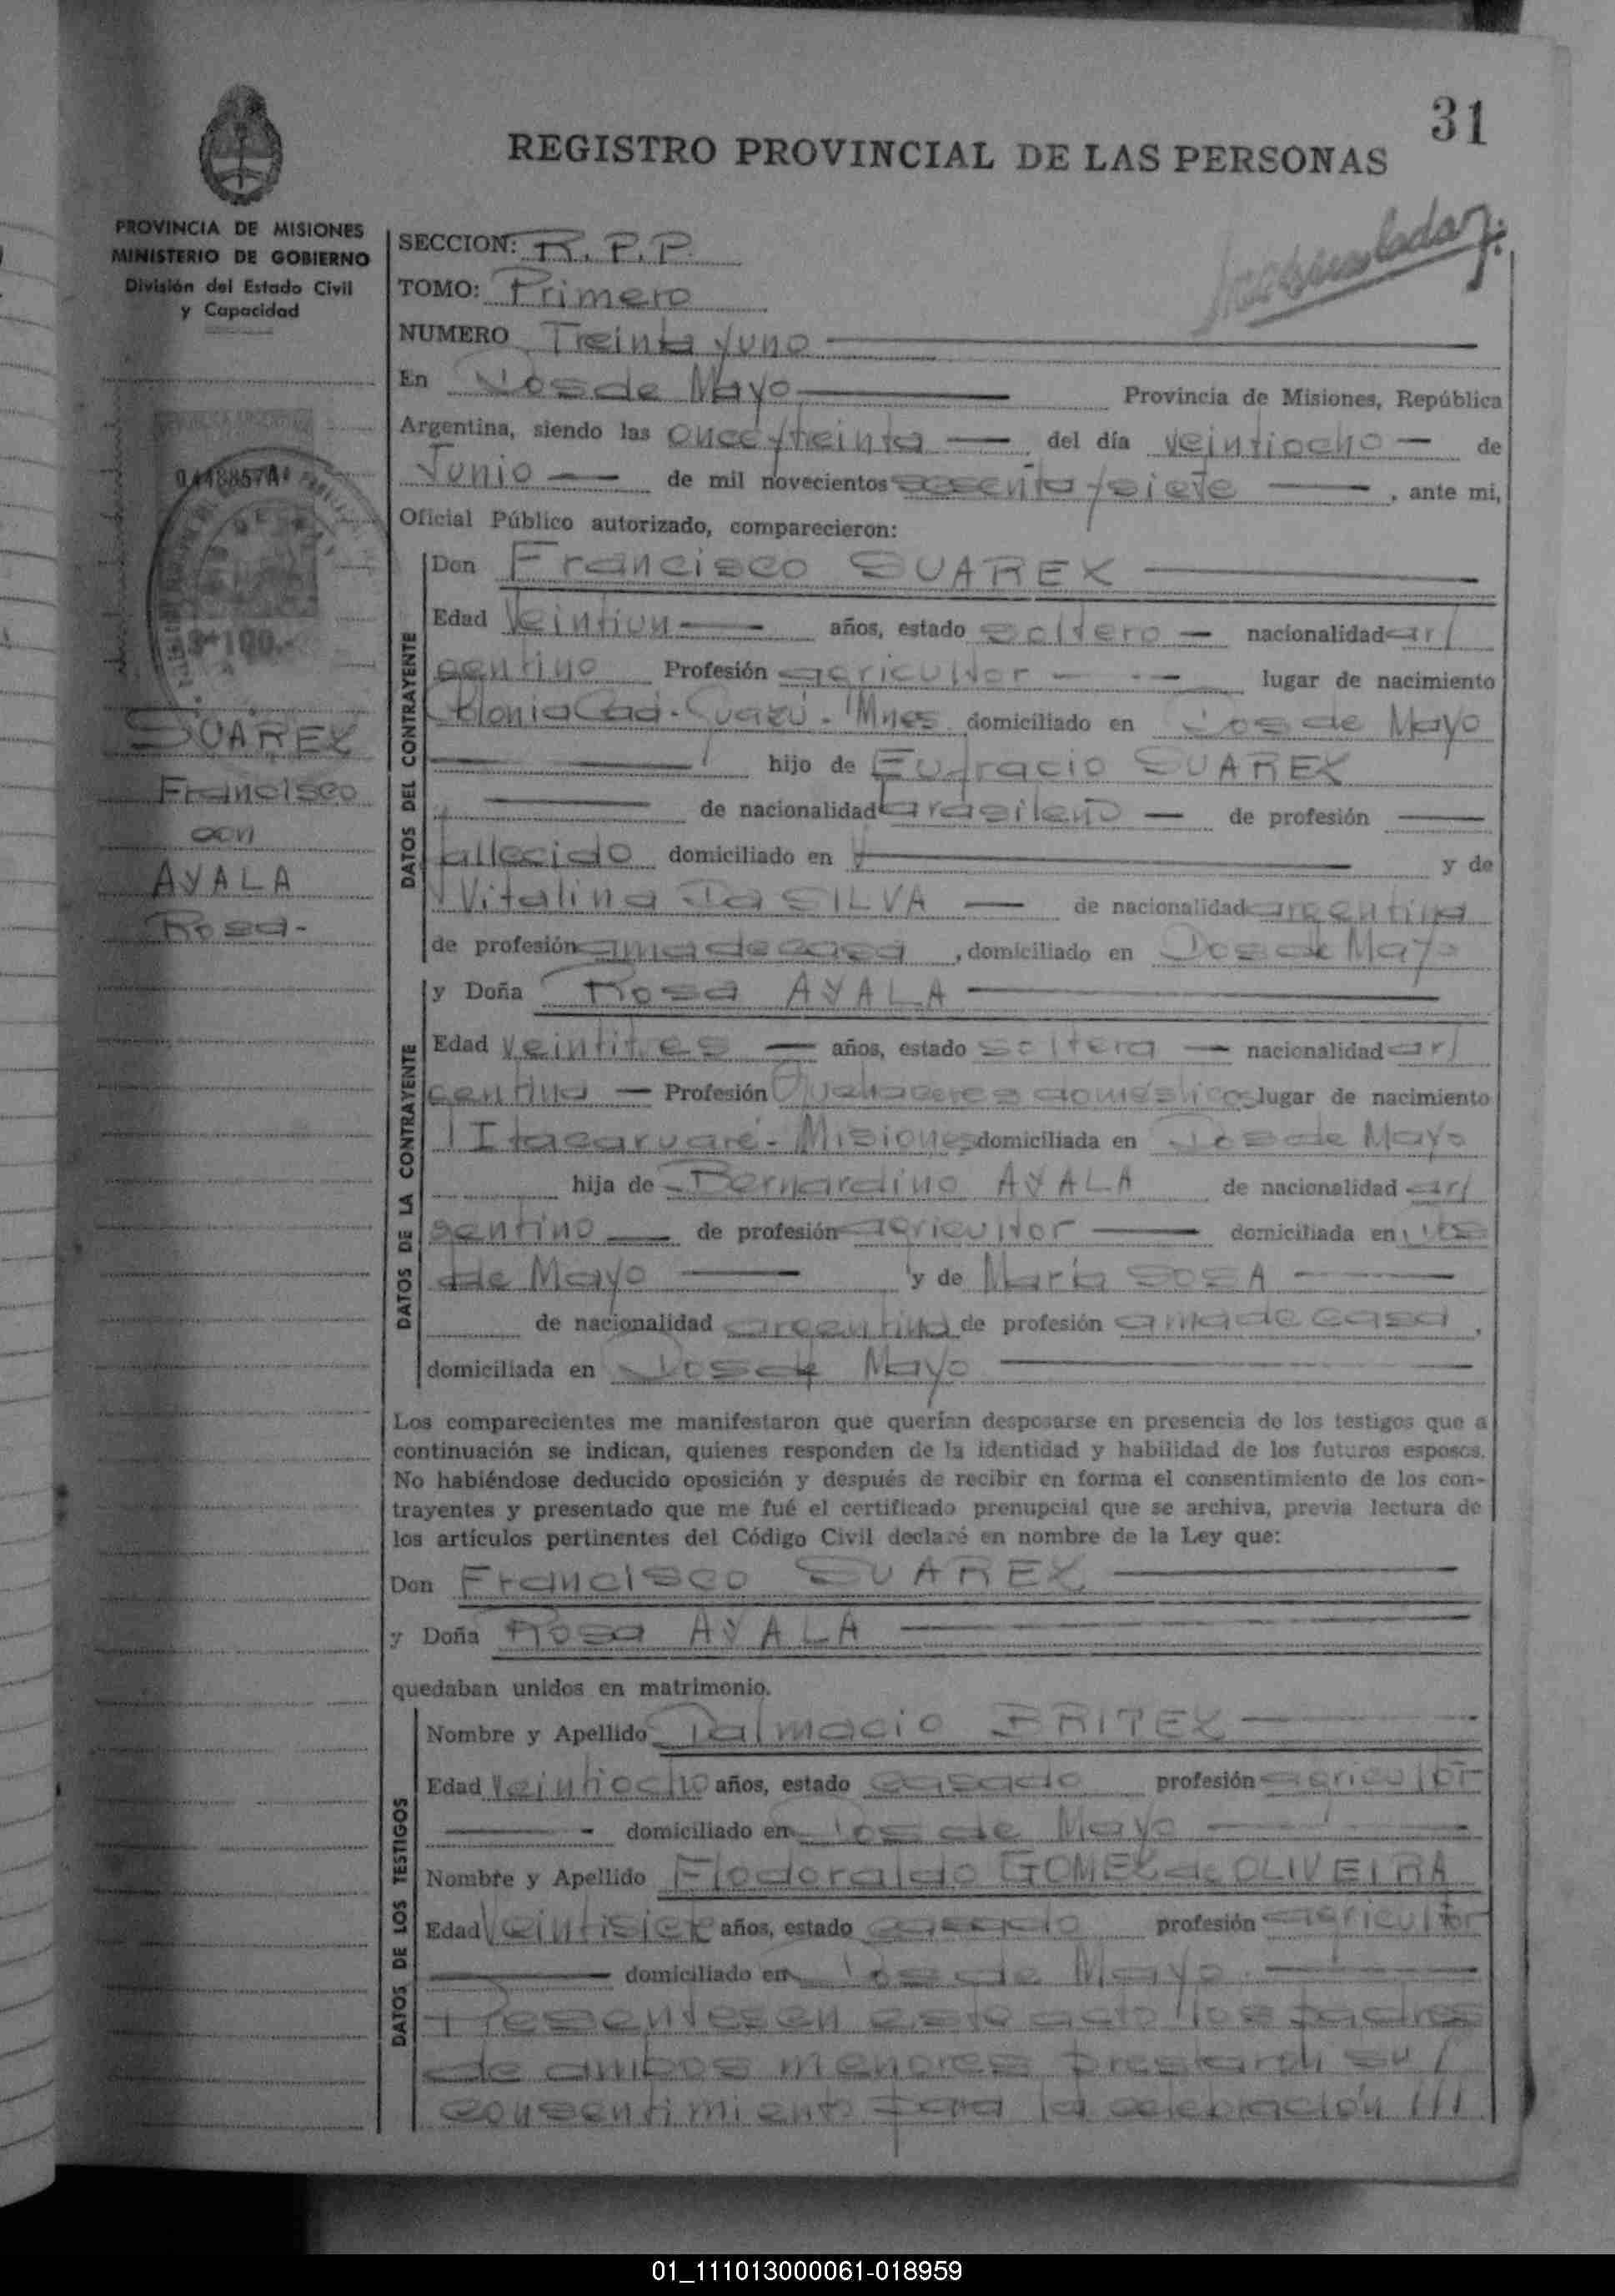 31
REGISTRO PROVINCIAL DE LAS PERSONAS
PROVINCIA DE MISIONES
MINISTERIO DE GOBIERNO
División del Estado Civil
y Capacidad
SUAREZ
Francisco
con
AYALA
Rosa.-
SECCION: R.P.P.
TOMO: Primero
NUMERO Treinta y uno
En Dos de Mayo Provincia de Misiones, República
Argentina, siendo las once y treinta del día veintiocho de
Junio de mil novecientos sesenta y siete, ante mi,
Oficial Público autorizado, comparecieron:
DATOS DEL CONTRAYENTE
Don Francisco SUAREZ
Edad Veintiun años, estado soltero nacionalidad ar/
gentino Profesión agricultor lugar de nacimiento
Colonia Caá-Guazú-Mnes domiciliado en Dos de Mayo
hijo de Eufracio SUAREZ
de nacionalidad brasileño de profesión
fallecido domiciliado en y de
Vitalina Da SILVA de nacionalidad argentina
de profesión ama de casa, domiciliado en Dos de Mayo
DATOS DE LA CONTRAYENTE
y Doña Rosa AYALA
Edad veintitres años, estado soltera nacionalidad ar/
gentina Profesión Quehaceres domésticos lugar de nacimiento
Itacaruaré-Misiones domiciliada en Dos de Mayo
hija de Bernardino AYALA de nacionalidad ar/
gentino de profesión agricultor domiciliada en Dos
de Mayo y de María SOSA
de nacionalidad argentina de profesión ama de casa,
domiciliada en Dos de Mayo
Los comparecientes me manifestaron que querían desposarse en presencia de los testigos que a
continuación se indican, quienes responden de la identidad y habilidad de los futuros esposos.
No habiéndose deducido oposición y después de recibir en forma el consentimiento de los con-
trayentes y presentado que me fué el certificado prenupcial que se archiva, previa lectura de
los artículos pertinentes del Código Civil declaré en nombre de la Ley que:
Don Francisco SUAREZ
y Doña Rosa AYALA
quedaban unidos en matrimonio.
DATOS DE LOS TESTIGOS
Nombre y Apellido Dalmacio BRITEZ
Edad Veintiocho años, estado casado profesión agricultor
domiciliado en Dos de Mayo
Nombre y Apellido Flodoraldo GOMEZ de OLIVEIRA
Edad Veintisiete años, estado casado profesión agricultor
domiciliado en Dos de Mayo
Presentes en este acto los padres
de ambos menores prestaron su/
consentimiento para la celebración ///
01_111013000061-018959